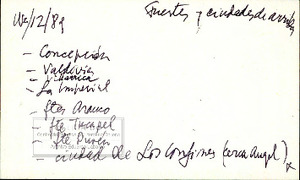 Fuertes y ciudades de arriba
/12/89
- Concepción
- Valdivia
- Villarrica
- La Imperial
- ftes Arauco
- fte Tucapel
- fte Purén
- ciudad de Los Confines (cerca Angol)